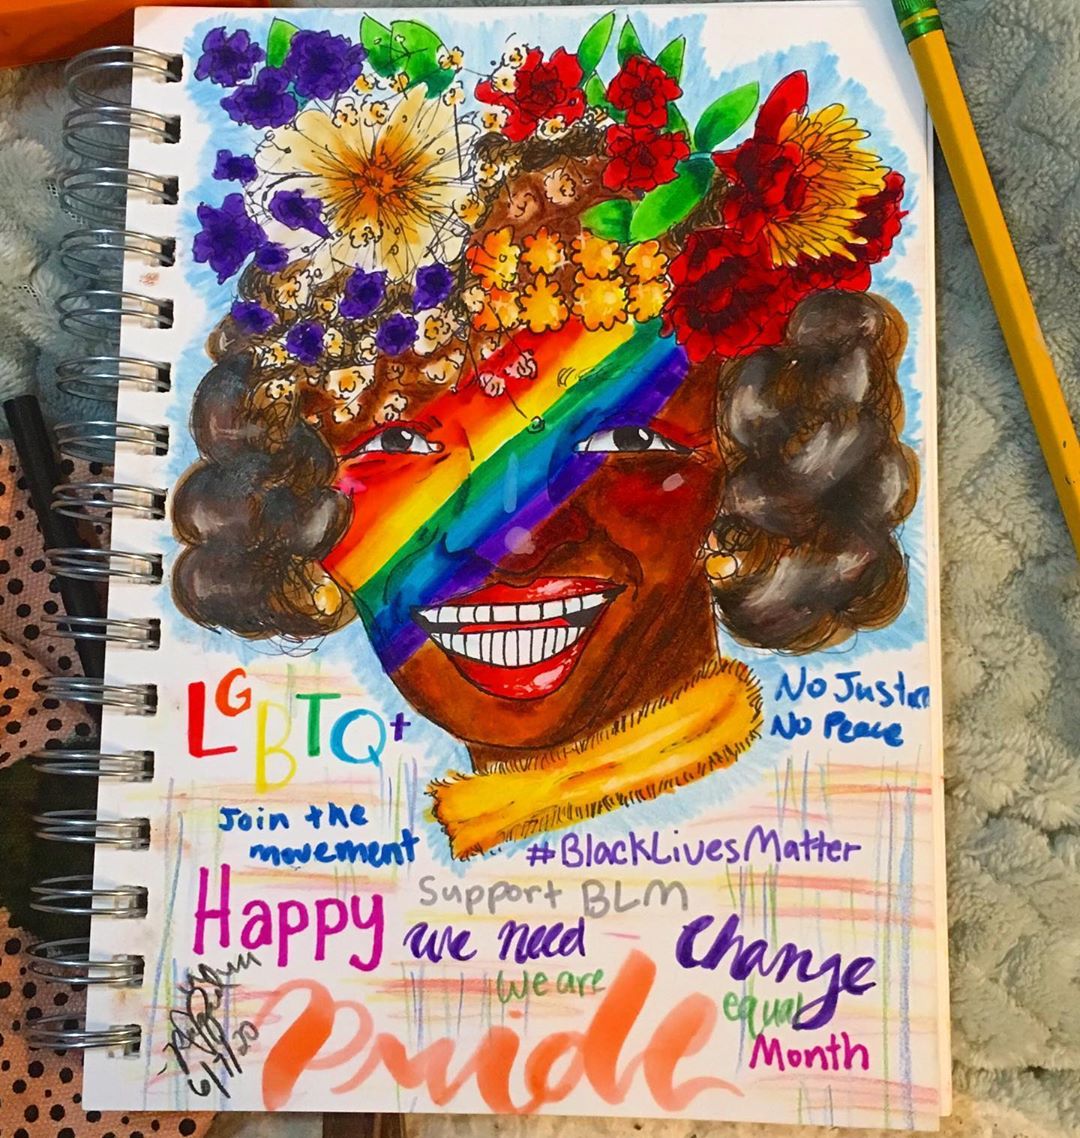 LGBTQ+
No Justice
No Peace
Join the
movement
#BlackLivesMatter
Support BLM
Happy
we need
Change
we are
equal
Pride
Month
6/7/20